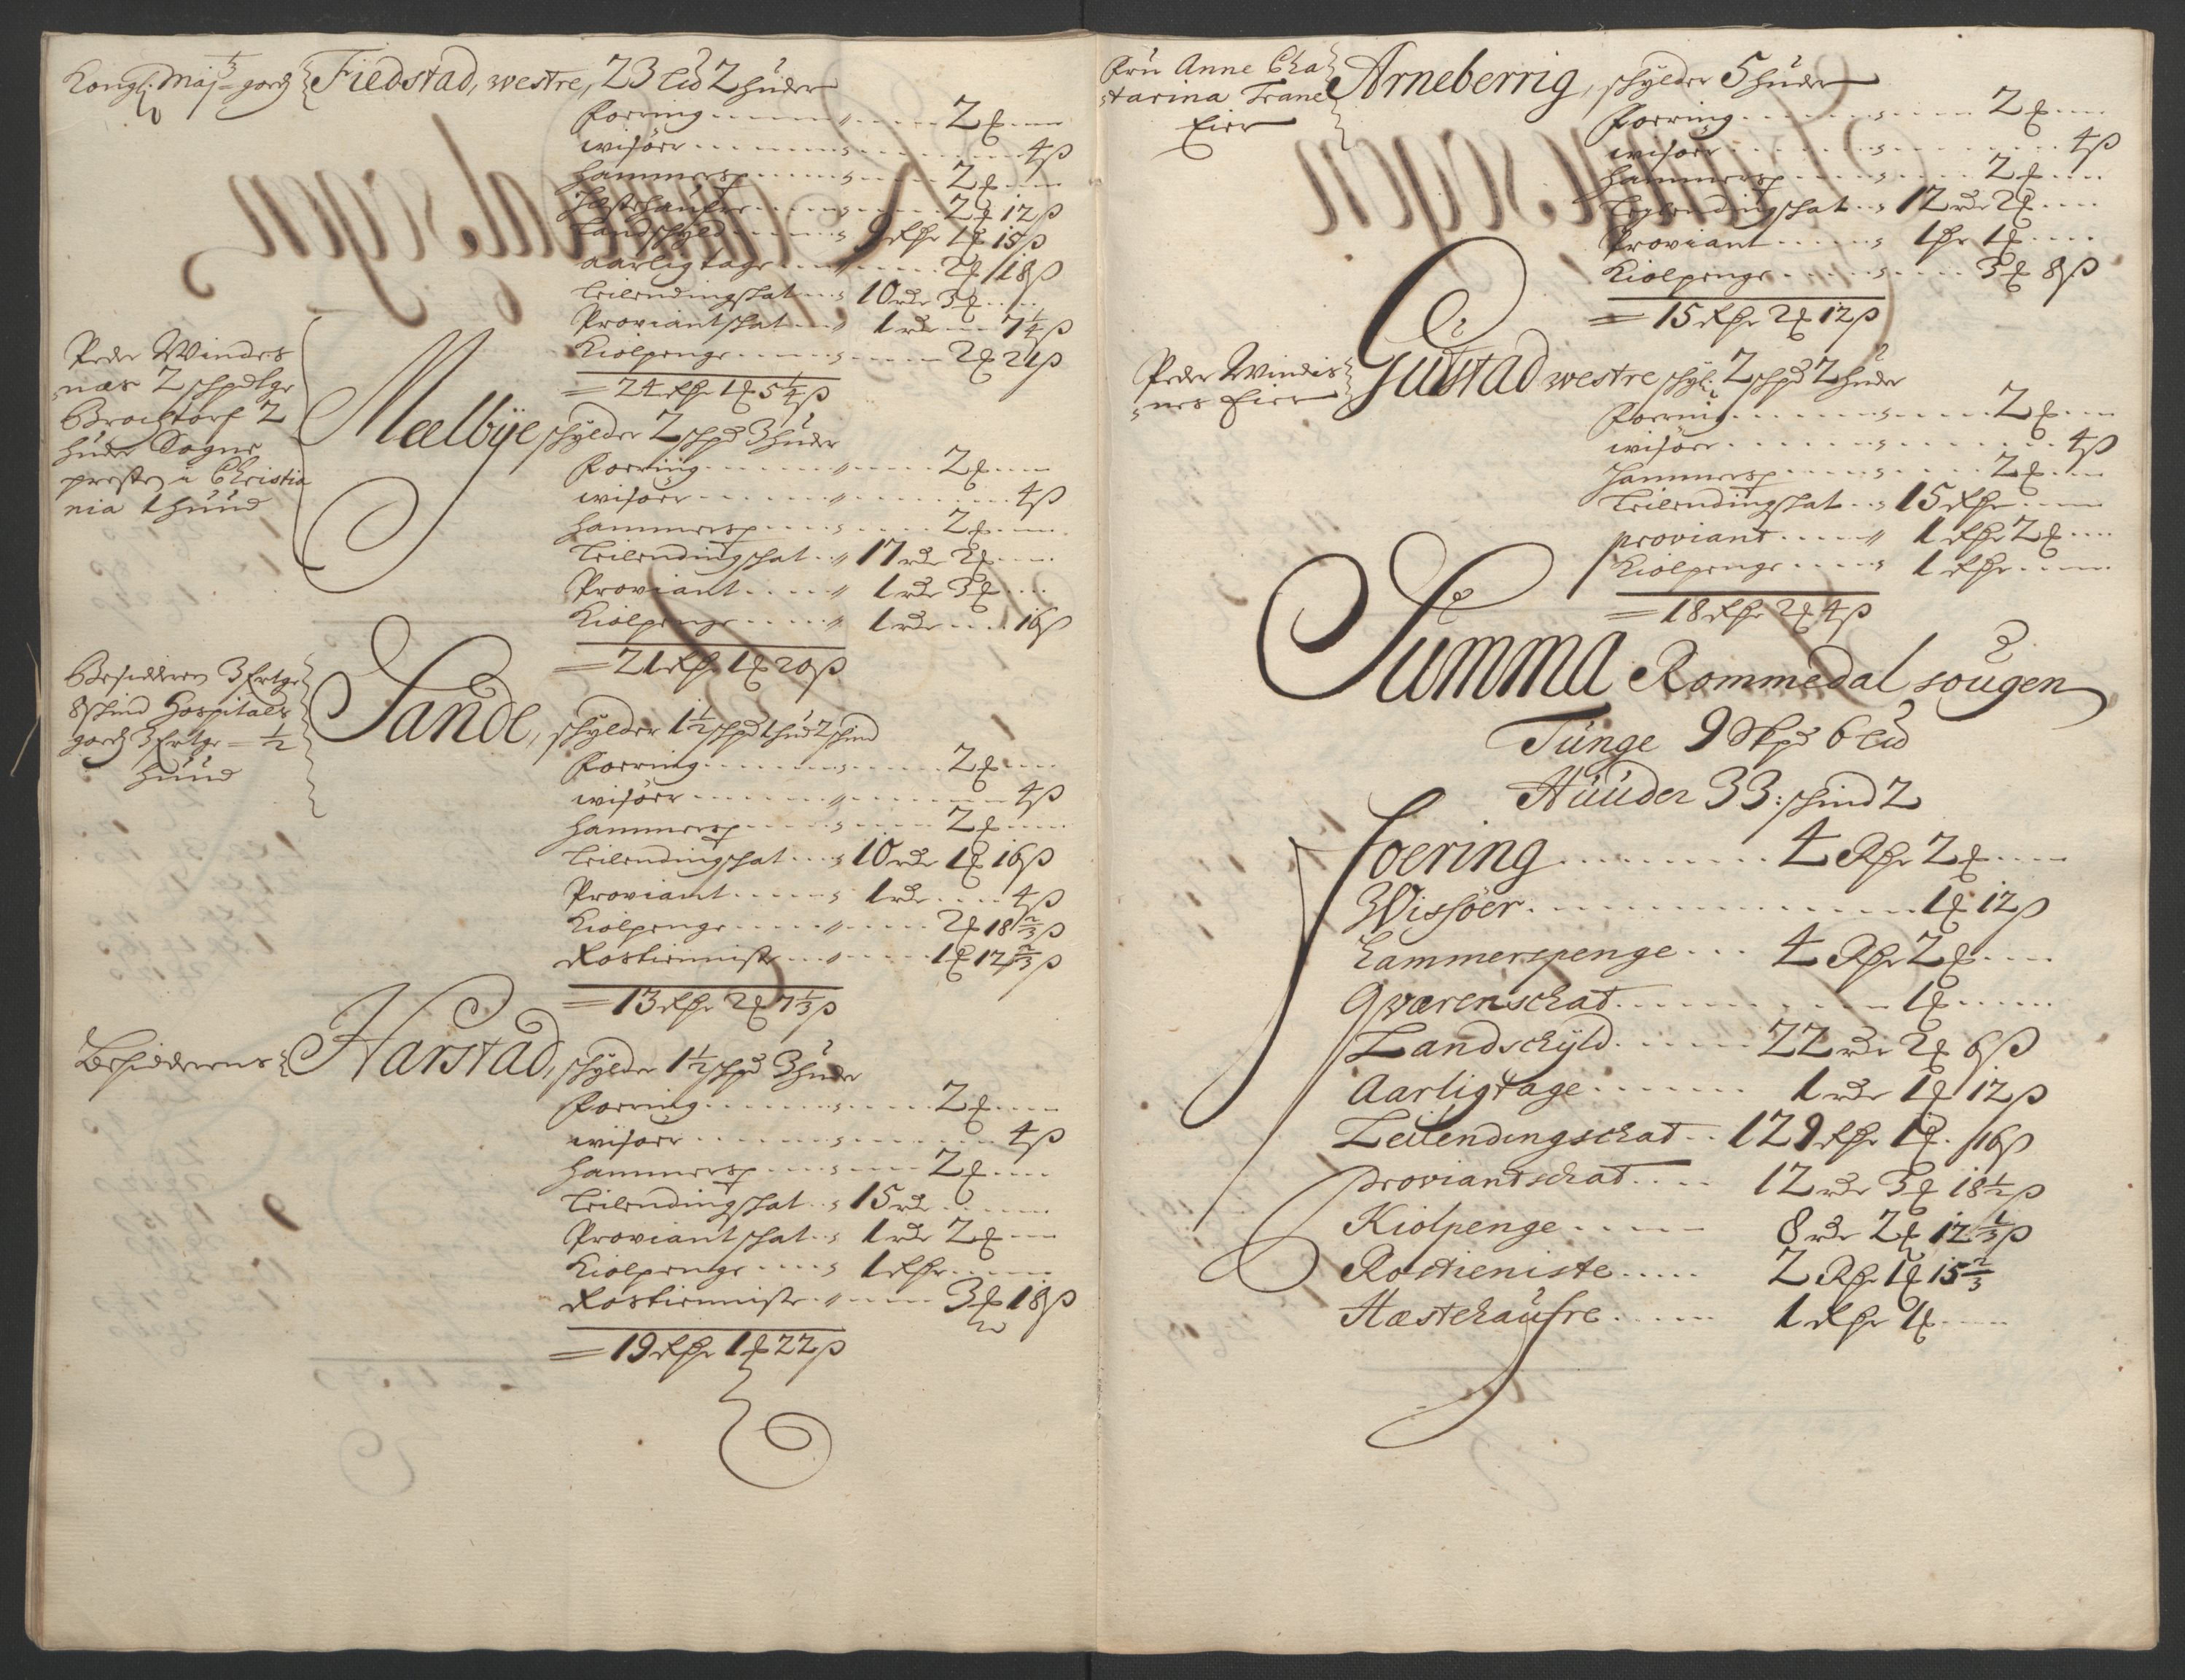 Kongl: Maj:tz gord Fiedstad, westre, 23 Lið 2 huder
Foering 2 ʠ
wisörr 4 ß
hammersp 2 ʠ
Hæstehaufre 2 ʠ 12 ß
Landschyld 9 Rhr 1 ʠ 15 ß
Aarligtage 2 ʠ 18 ß
Leilendingschat 10 rdr 3 ʠ
Proviantschat 1 rdr 7 1/4 ß
Kiölpenge 2 ʠ 21 ß
= 24 Rhr 1 ʠ 5 1/4 ß
Peder Windes
næs 2 schpd tge
Brochtorf 2
huder Sogne
presten i Christia
nia 1 huud
Mælbÿe schylder 2 schpd 3 huder
Foering 2 ʠ
wisörr 4 ß
hammersp 2 ʠ
Leilendingschat 17 rdr 2 ʠ
Proviant 1 rdr 3 ʠ
Kiölpenge 1 rdr 16 ß
= 21 Rhr 1 ʠ 20 ß
Besidderen 3 frtge
8 skind Hospitals
gord 3 frtge = 1/2
huud
Sande, schylder 1 1/2 schpd 1 hud 2 schind
Foering 2 ʠ
wisörr 4 ß
hammersp 2 ʠ
Leilendingschat 10 rdr 1 ʠ 16 ß
Proviant 1 rdr 4 ß
Kiölpenge 2 ʠ 18 2/3 ß
Rostienniste 1 ʠ 12 2/3 ß
= 13 Rhr 2 ʠ 7 1/3 ß
Besidderens Harstad, schylder 1 1/2 schpd 3 huder
Foering 2 ʠ
wisörr 4 ß
hammersp 2 ʠ
Leilendingschat 15 rdr
Proviantschat 1 rdr 2 ʠ
Kiölpenge 1 Rhr
Rostienniste 3 ʠ 18 ß
= 19 Rhr 1 ʠ 22 ß
Fru Anne Cha
tarina Trane
Eier
Arneberrig, schylder 5 huder
Foering 2 ʠ
wisörr 4 ß
hammersp 2 ʠ
Leylendingschat 12 rdr 2 ʠ
Proviant 1 hr 1 ʠ
Kiölpenge 3 ʠ 8 ß
= 15 Rhr 2 ʠ 12 ß
Peder Windis
nes Eier
Gustad westre schyl: 2 schpd 2 huder
Foering 2 ʠ
wisörr 4 ß
hammersp 2 ʠ
Leilendingschat 15 Rhr
proviant 1 Rhr 2 ʠ
Kiölpenge 1 Rhr
= 18 Rhr 2 ʠ 4 ß
Summa Rommedal sougen
Tunge 9 Skpd 6 Lið
Huuder 33: schind 2
Foering 4 Rhr 2 ʠ
Wissöer 1 ʠ 12 ß
hammerspenge 4 Rhr 2 ʠ
Qværenschat 1 ʠ
Landschÿld 22 rdr 2 ʠ 6 ß
Aarligtage 1 rdr 1 ʠ 12 ß
Leilendingschat 129 Rhr 1 ʠ 16 ß
proviantschat 12 rdr 3 ʠ 18 1/2 ß
Kiölpenge 8 rdr 2 ʠ 12 1/3 ß
Rostieniste 2 Rhr 1 ʠ 15 2/3
Hæstehaufre 1 Rhr 1 ʠ